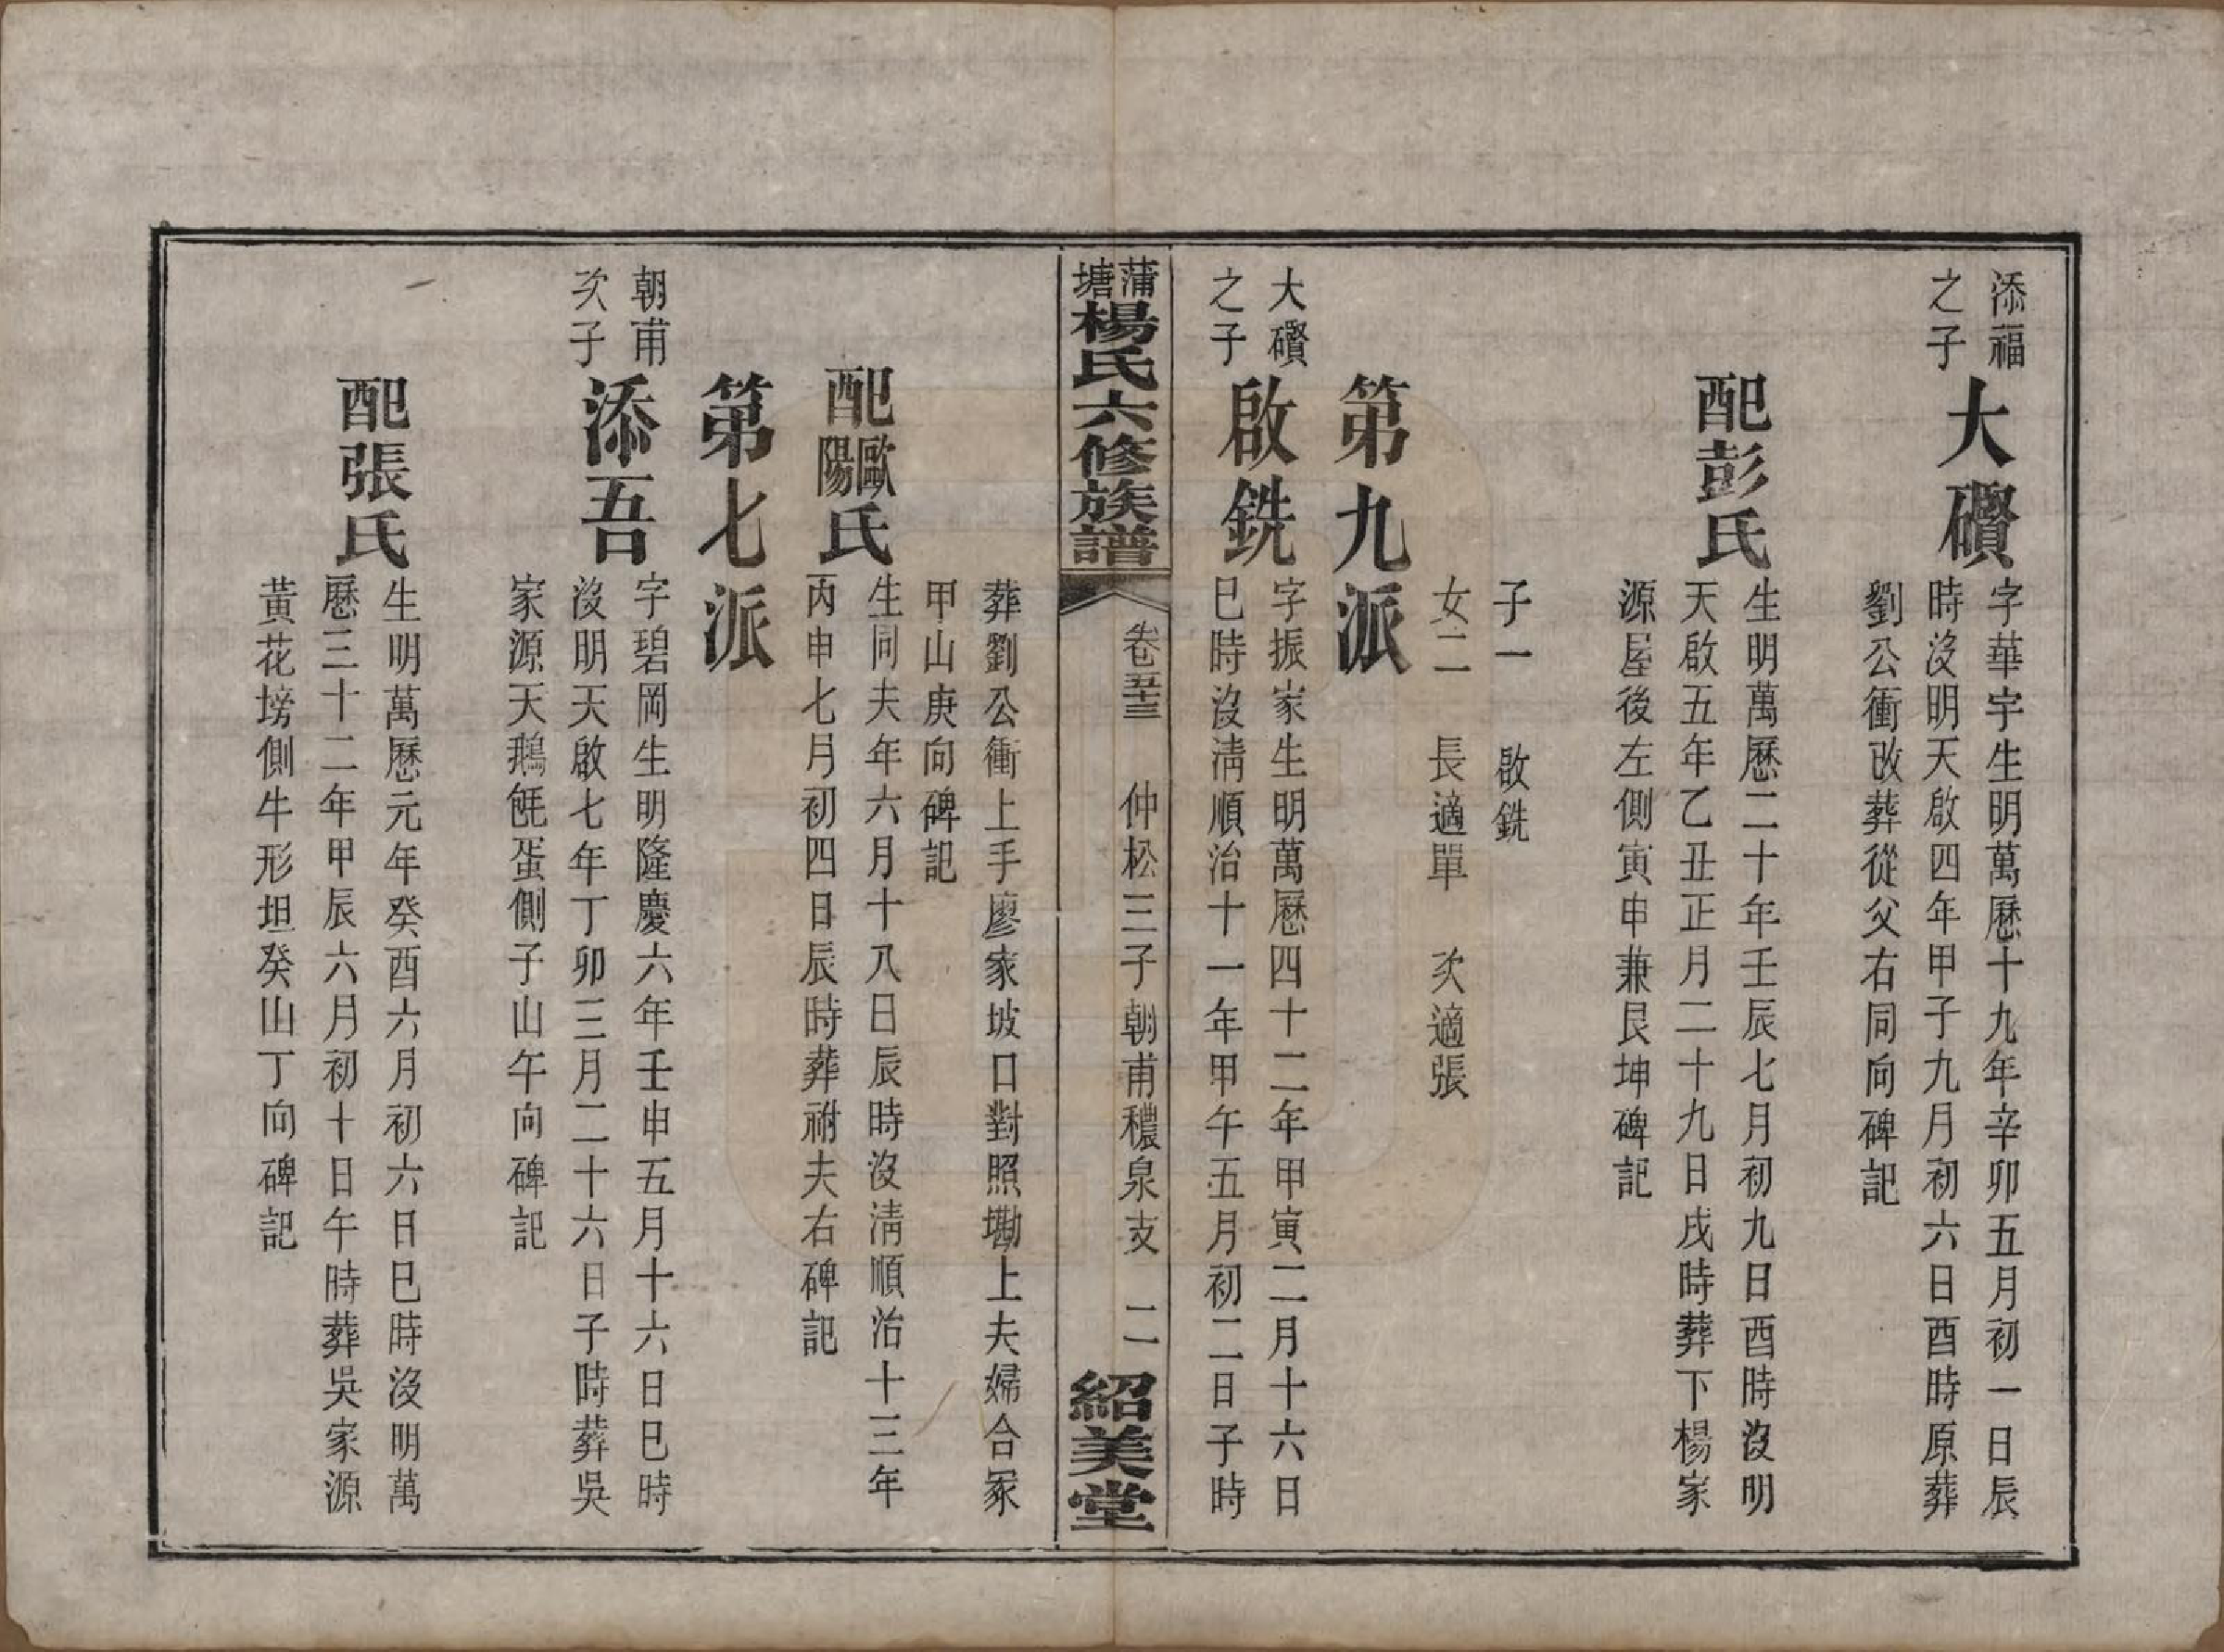 添福
之子
大礩
字華宇生明萬曆十九年辛卯五月初一日辰
時沒明天啟四年甲子九月初六日酉時原葬
劉公衝改葬從父右同向碑記
配彭氏
生明萬曆二十年壬辰七月初九日酉時沒明
天啟五年乙丑正月二十九日戌時葬下楊家
源屋後左側寅申兼艮坤碑記
子一 啟銑
女二 長適單 次適張
第九派
大礩
之子
啟銑
字振家生明萬曆四十二年甲寅二月十六日
巳時沒清順治十一年甲午五月初二日子時
蒲塘楊氏六修族譜
卷五十三 仲松三子朝甫穠泉支 二
紹美堂
葬劉公衝上手廖家坡口對照墈上夫婦合冢
甲山庚向碑記
配歐陽氏
生同夫年六月十八日辰時沒清順治十三年
丙申七月初四日辰時葬祔夫右碑記
第七派
朝甫
次子
添吾
字碧岡生明隆慶六年壬申五月十六日巳時
沒明天啟七年丁卯三月二十六日子時葬吳
家源天鵝毻蛋側子山午向碑記
配張氏
生明萬曆元年癸酉六月初六日巳時沒明萬
曆三十二年甲辰六月初十日午時葬吳家源
黃花塝側牛形坦癸山丁向碑記